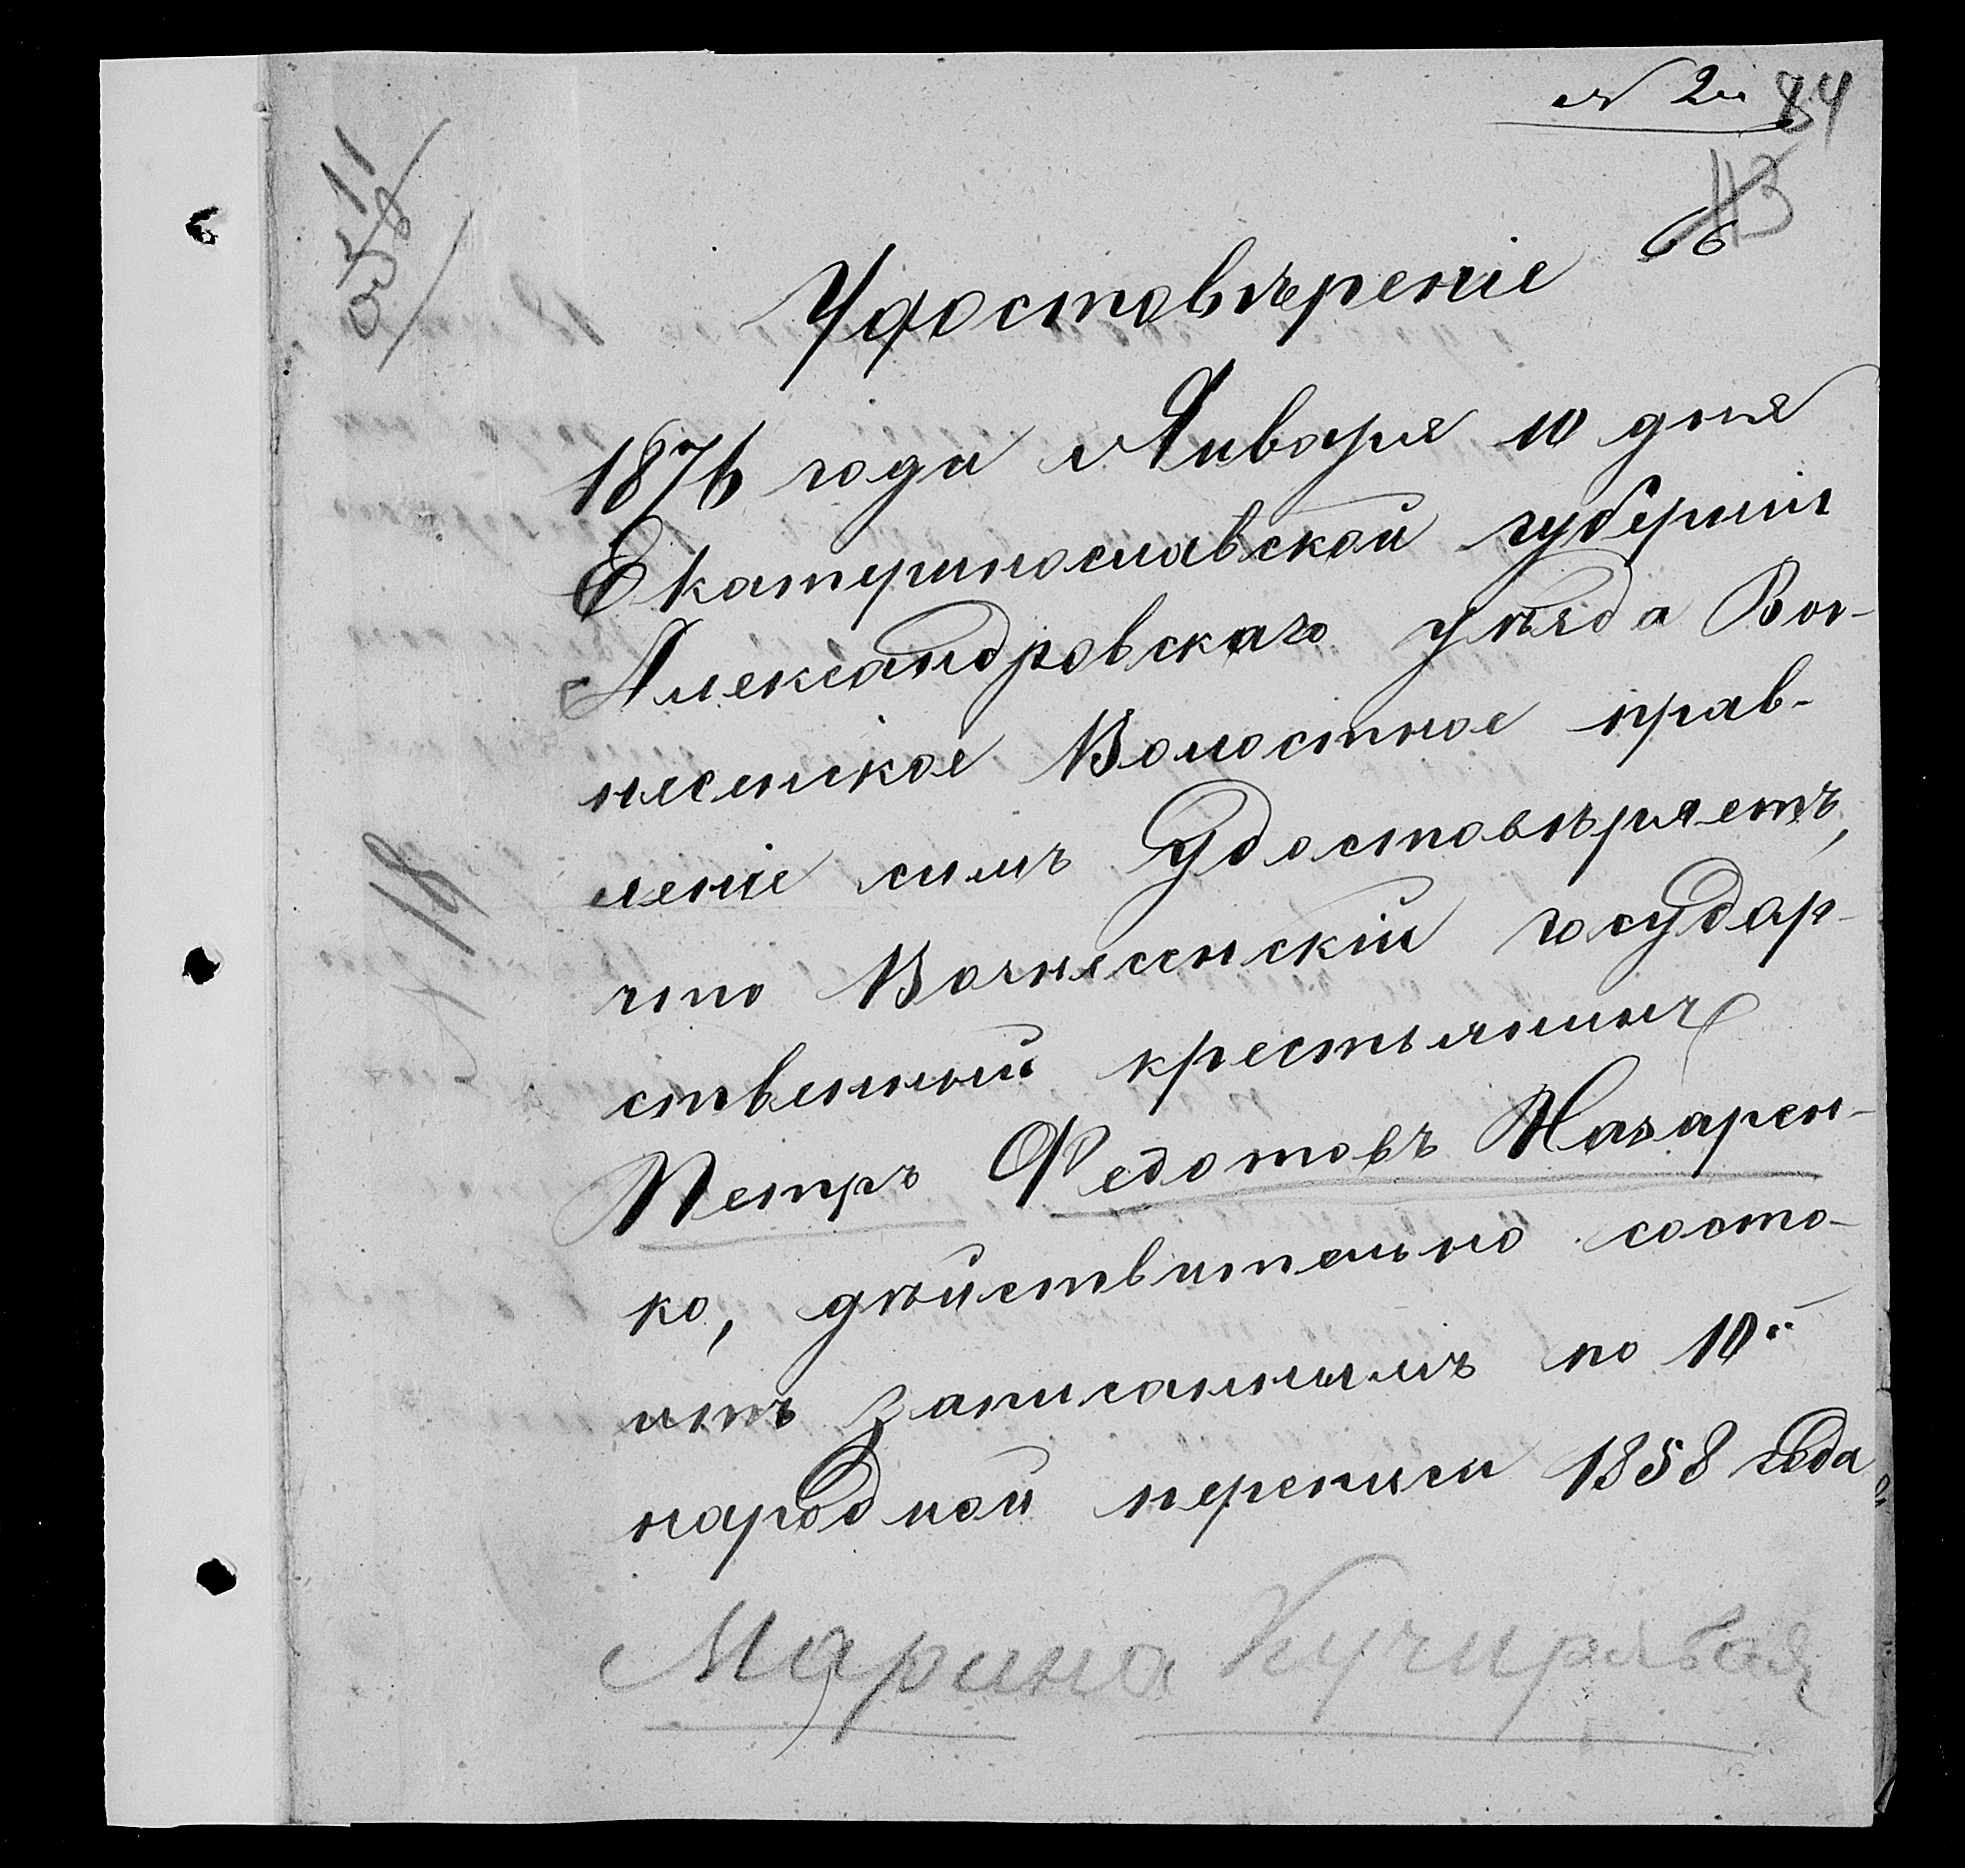 № 2й 84
113
66
Удостовѣреніе
1876 года Января 10 дня
Екатеринославской губерніи
Александровскаго уѣзда Воз-
несенское Волостное прав-
леніе симъ Удостовѣряетъ,
что Вознесенскій государ-
ственный крестьянинъ
Петръ Федотовъ Назарен-
ко, дѣйствительно состо-
итъ записаннымъ по 10й
народной переписи 1858 года
Марина Кучирявая
18